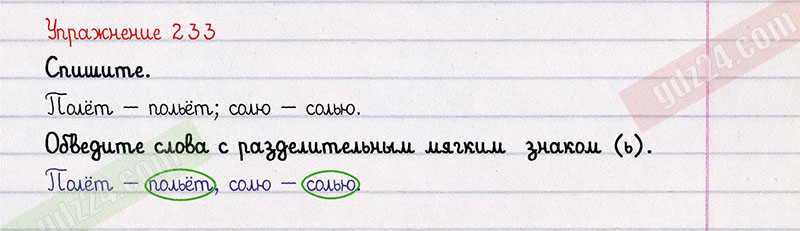 Упражнение 233
Спишите.
Полёт – польёт; солю – солью.
Обведите слова с разделительным мягким знаком (ь).
Полёт – польёт, солю – солью.
gdz24.com
gdz24.com